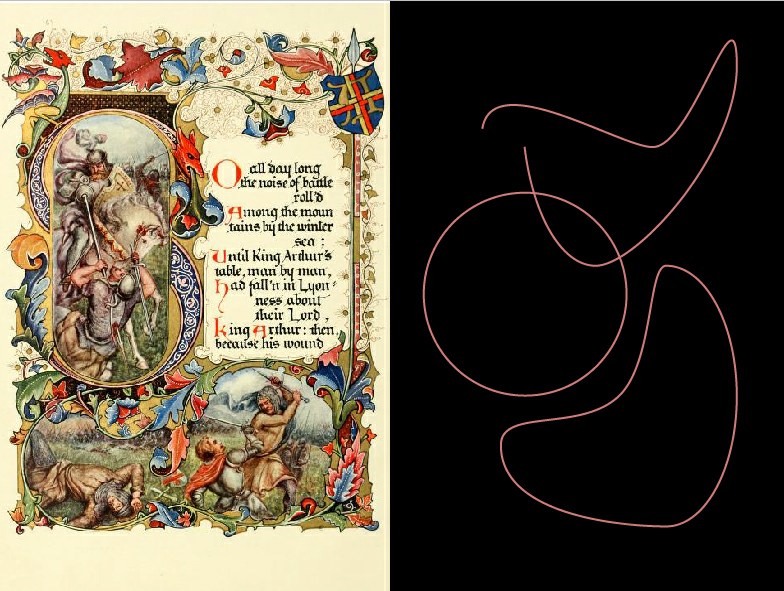 O all day long
the noise of battle
roll'd
Among the moun
tains by the winter
sea :
Until King Arthur's
table, man by man,
had fall'n in Lyon=
ness about
their Lord,
King Arthur: then,
because his wound